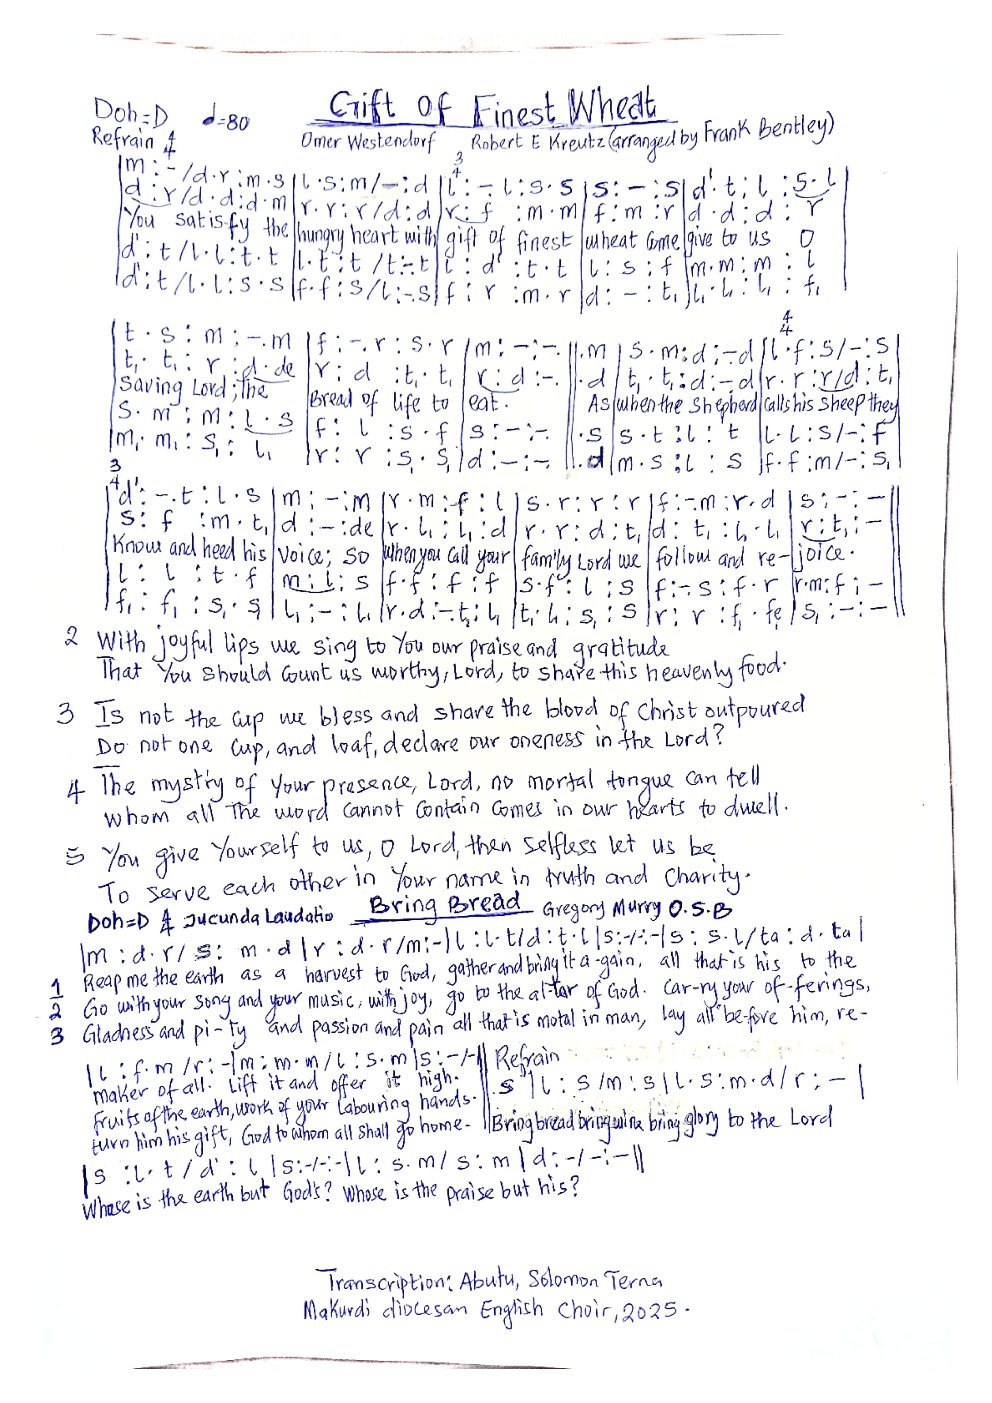 Gift Of Finest Wheat
Doh=D d=80
Refrain 4/4 Omer Westendorf Robert E Kreutz (arranged by Frank Bentley)
3/4
|m : - / d · r : m · s | l · s : m / - : d | l : - l : s · s | s : - : s | d' · t : l : s · l |
d : r / d : d : d · m | r · r : r / d : d | r : f : m · m | f : m : r | d · d : d : r |
You satisfy the hungry heart with gift of finest wheat come give to us O
d' : t / l · l : t · t | l · t : t / t : - t | l : d' : t · t | l : s : f | m · m : m : l |
d' : t / l · l : s · s | f · f : s / l : - . s | f : r : m · r | d : - : t₁ | l₁ · l₁ : l₁ : f₁ |
4/4
| t · s : m : - . m | f : - . r : s · r | m : - : - || . m | s · m : d : - d | l · f : s / - : s |
t₁ · t₁ : r : d · de | r : d : t₁ · t₁ | r : d : - . || . d | t₁ · t₁ : d : - d | r · r : r / d : t₁ |
Saving Lord; the Bread of life to eat. As when the Shepherd calls his sheep they
s · m : m : l · s | f : l : s · f | s : - : - || . s | s · t : l : t | l · l : s / - : f |
m₁ · m₁ : s₁ : l₁ | r : r : s₁ · s₁ | d : - : - || . d | m · s : l : s | f · f : m / - : s₁ |
3/4
| d' : - . t : l · s | m : - : m | r · m : f : l | s · r : r : r | f : - m : r · d | s : - : - ||
s : f : m · t₁ | d : - : de | r · l₁ : l₁ : d | r · r : d : t₁ | d : t₁ : l₁ · l₁ | r : t₁ : - ||
Know and heed his voice; so when you call your family Lord we follow and re- joice.
l : l : t · f | m : l : s | f · f : f : f | s · f : l : s | f : - s : f · r | r · m : f : - ||
f₁ : f₁ : s₁ · s₁ | l₁ : - : l₁ | r · d : - t₁ : l₁ | t₁ · l₁ : s₁ : s | r : r : f₁ · fe₁ | s₁ : - : - ||
2 With joyful lips we sing to You our praise and gratitude
That You should Count us worthy, Lord, to share this heavenly food.
3 Is not the cup we bless and share the blood of Christ outpoured
Do not one cup, and loaf, declare our oneness in the Lord?
4 The mystry of Your presence, Lord, no mortal tongue can tell
whom all the word cannot contain comes in our hearts to dwell.
5 You give Yourself to us, O Lord, then selfless let us be
To serve each other in Your name in truth and Charity.
Doh=D 4/4 Jucunda Laudatio Bring Bread Gregory Murry O.S.B
|m : d · r / s : m · d | r : d · r / m : - | l : l · t / d' : t · l | s : - / - : - | s : s · l / ta : d' · ta |
1 Reap me the earth as a harvest to God, gather and bring it a-gain, all that is his to the
2 Go with your song and your music, with joy, go to the al-tar of God. Car-ry your of-ferings,
3 Gladness and pi-ty and passion and pain all that is motal in man, lay all be-fore him, re-
| l : f · m / r : - | m : m · m / l : s · m | s : - / - || Refrain
maker of all. Lift it and offer it high. . s | l : s / m : s | l · s : m · d / r : - |
fruits of the earth, work of your labouring hands.
turn him his gift, God to whom all shall go home. Bring bread bring wine bring glory to the Lord
| s : l · t / d' : l | s : - / - : - | l : s · m / s : m | d : - / - : - ||
Whose is the earth but God's? Whose is the praise but his?
Transcription: Abutu, Solomon Terna
Makurdi diocesan English Choir, 2025.